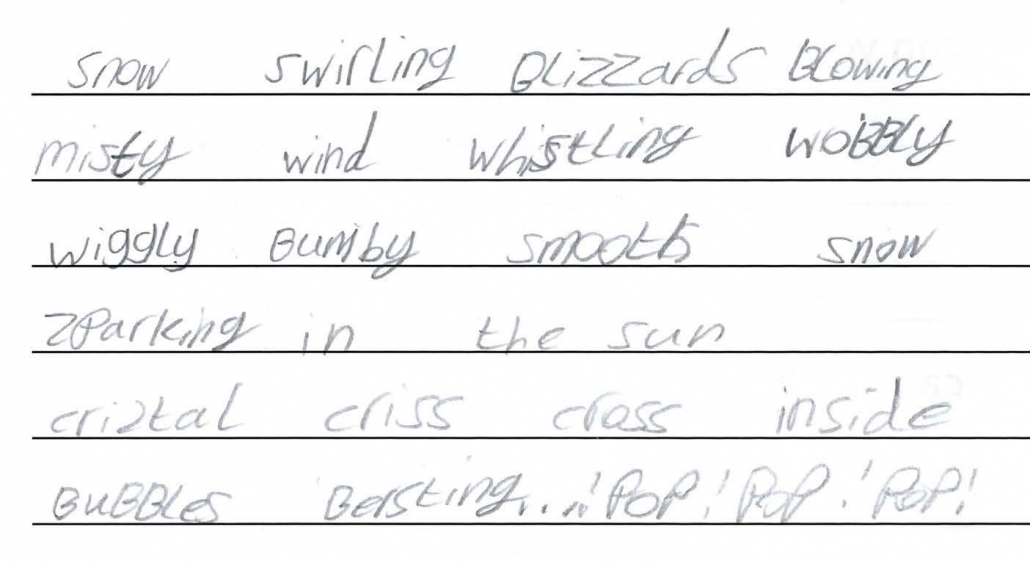 snow swirling Blizzards Blowing
misty wind whistling woBBly
wiggly Bumby smooth snow
zParking in the sun
criztal criss cross inside
BuBBLes Bersting...! PoP! PoP! PoP!